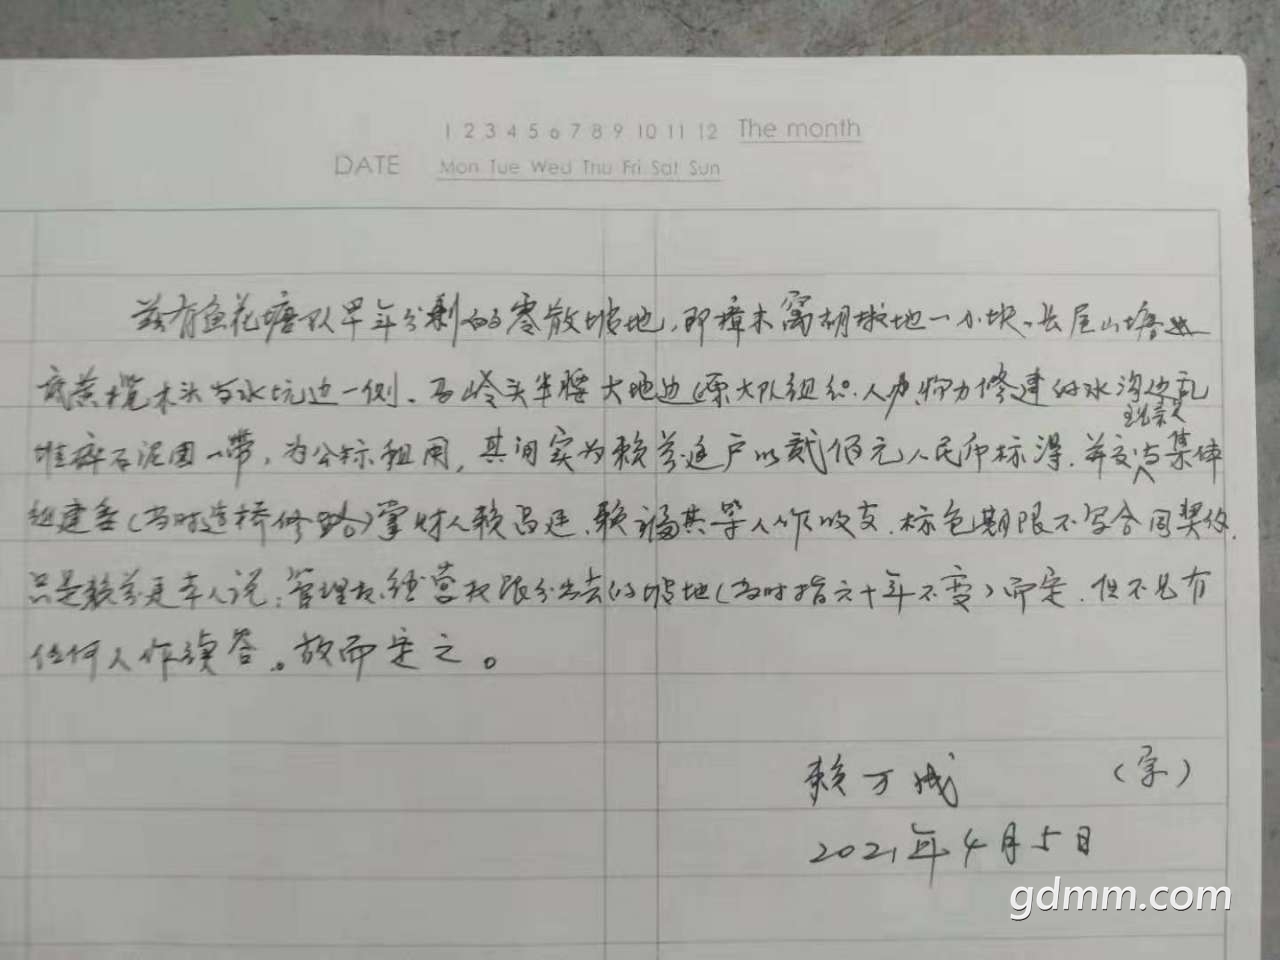 1 2 3 4 5 6 7 8 9 10 11 12 The month
DATE Mon Tue Wed Thu Fri Sat Sun
兹有鱼花塘队早年分剩的零散坡地，即樟木窝胡椒地一小块。长尾山塘
底黄榄木头与水坑边一侧、马岭头半腰大地边原大队组织人力物力修建的水沟边乱
现亲交
堆碎石泥团一带，为公标租用，其间实为赖芬廷户以贰佰元人民币标得，并交与集体
组建委（当时造桥修路）掌财人赖昌廷、赖福其等人作收支，标包期限不写合同契约，
只是赖芬廷本人说：管理权经营权限分出去的坡地（当时指六十年不变）而定，但不见有
任何人作续答。故而定之。
赖万成 （字）
2021年4月5日
gdmm.com